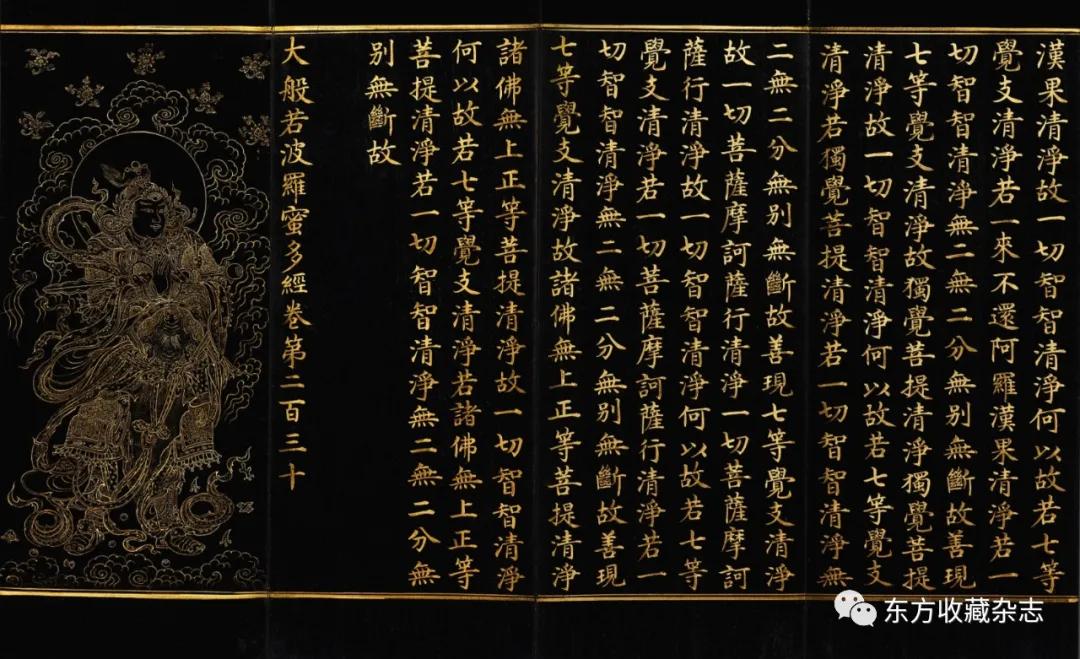 漢果清淨故一切智智清淨何以故若七等
覺支清淨若一來不還阿羅漢果清淨若一
切智智清淨無二無二分無別無斷故善現
七等覺支清淨故獨覺菩提清淨獨覺菩提
清淨故一切智智清淨何以故若七等覺支
清淨若獨覺菩提清淨若一切智智清淨無
二無二分無別無斷故善現七等覺支清淨
故一切菩薩摩訶薩行清淨一切菩薩摩訶
薩行清淨故一切智智清淨何以故若七等
覺支清淨若一切菩薩摩訶薩行清淨若一
切智智清淨無二無二分無別無斷故善現
七等覺支清淨故諸佛無上正等菩提清淨
諸佛無上正等菩提清淨故一切智智清淨
何以故若七等覺支清淨若諸佛無上正等
菩提清淨若一切智智清淨無二無二分無
別無斷故
大般若波羅蜜多經卷第二百三十
东方收藏杂志